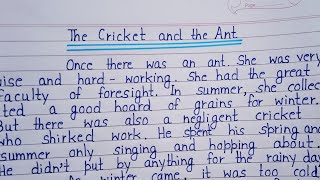 The Cricket and the Ant
Once there was an ant. She was very
wise and hard - working. She had the great
faculty of foresight. In summer, she collec
ted a good hoard of grains for winter.
But there was also a negligent cricket
who shirked work. He spent his spring and
summer only singing and hopping about.
He didn't put by anything for the rainy day
As winter came, it was too cold